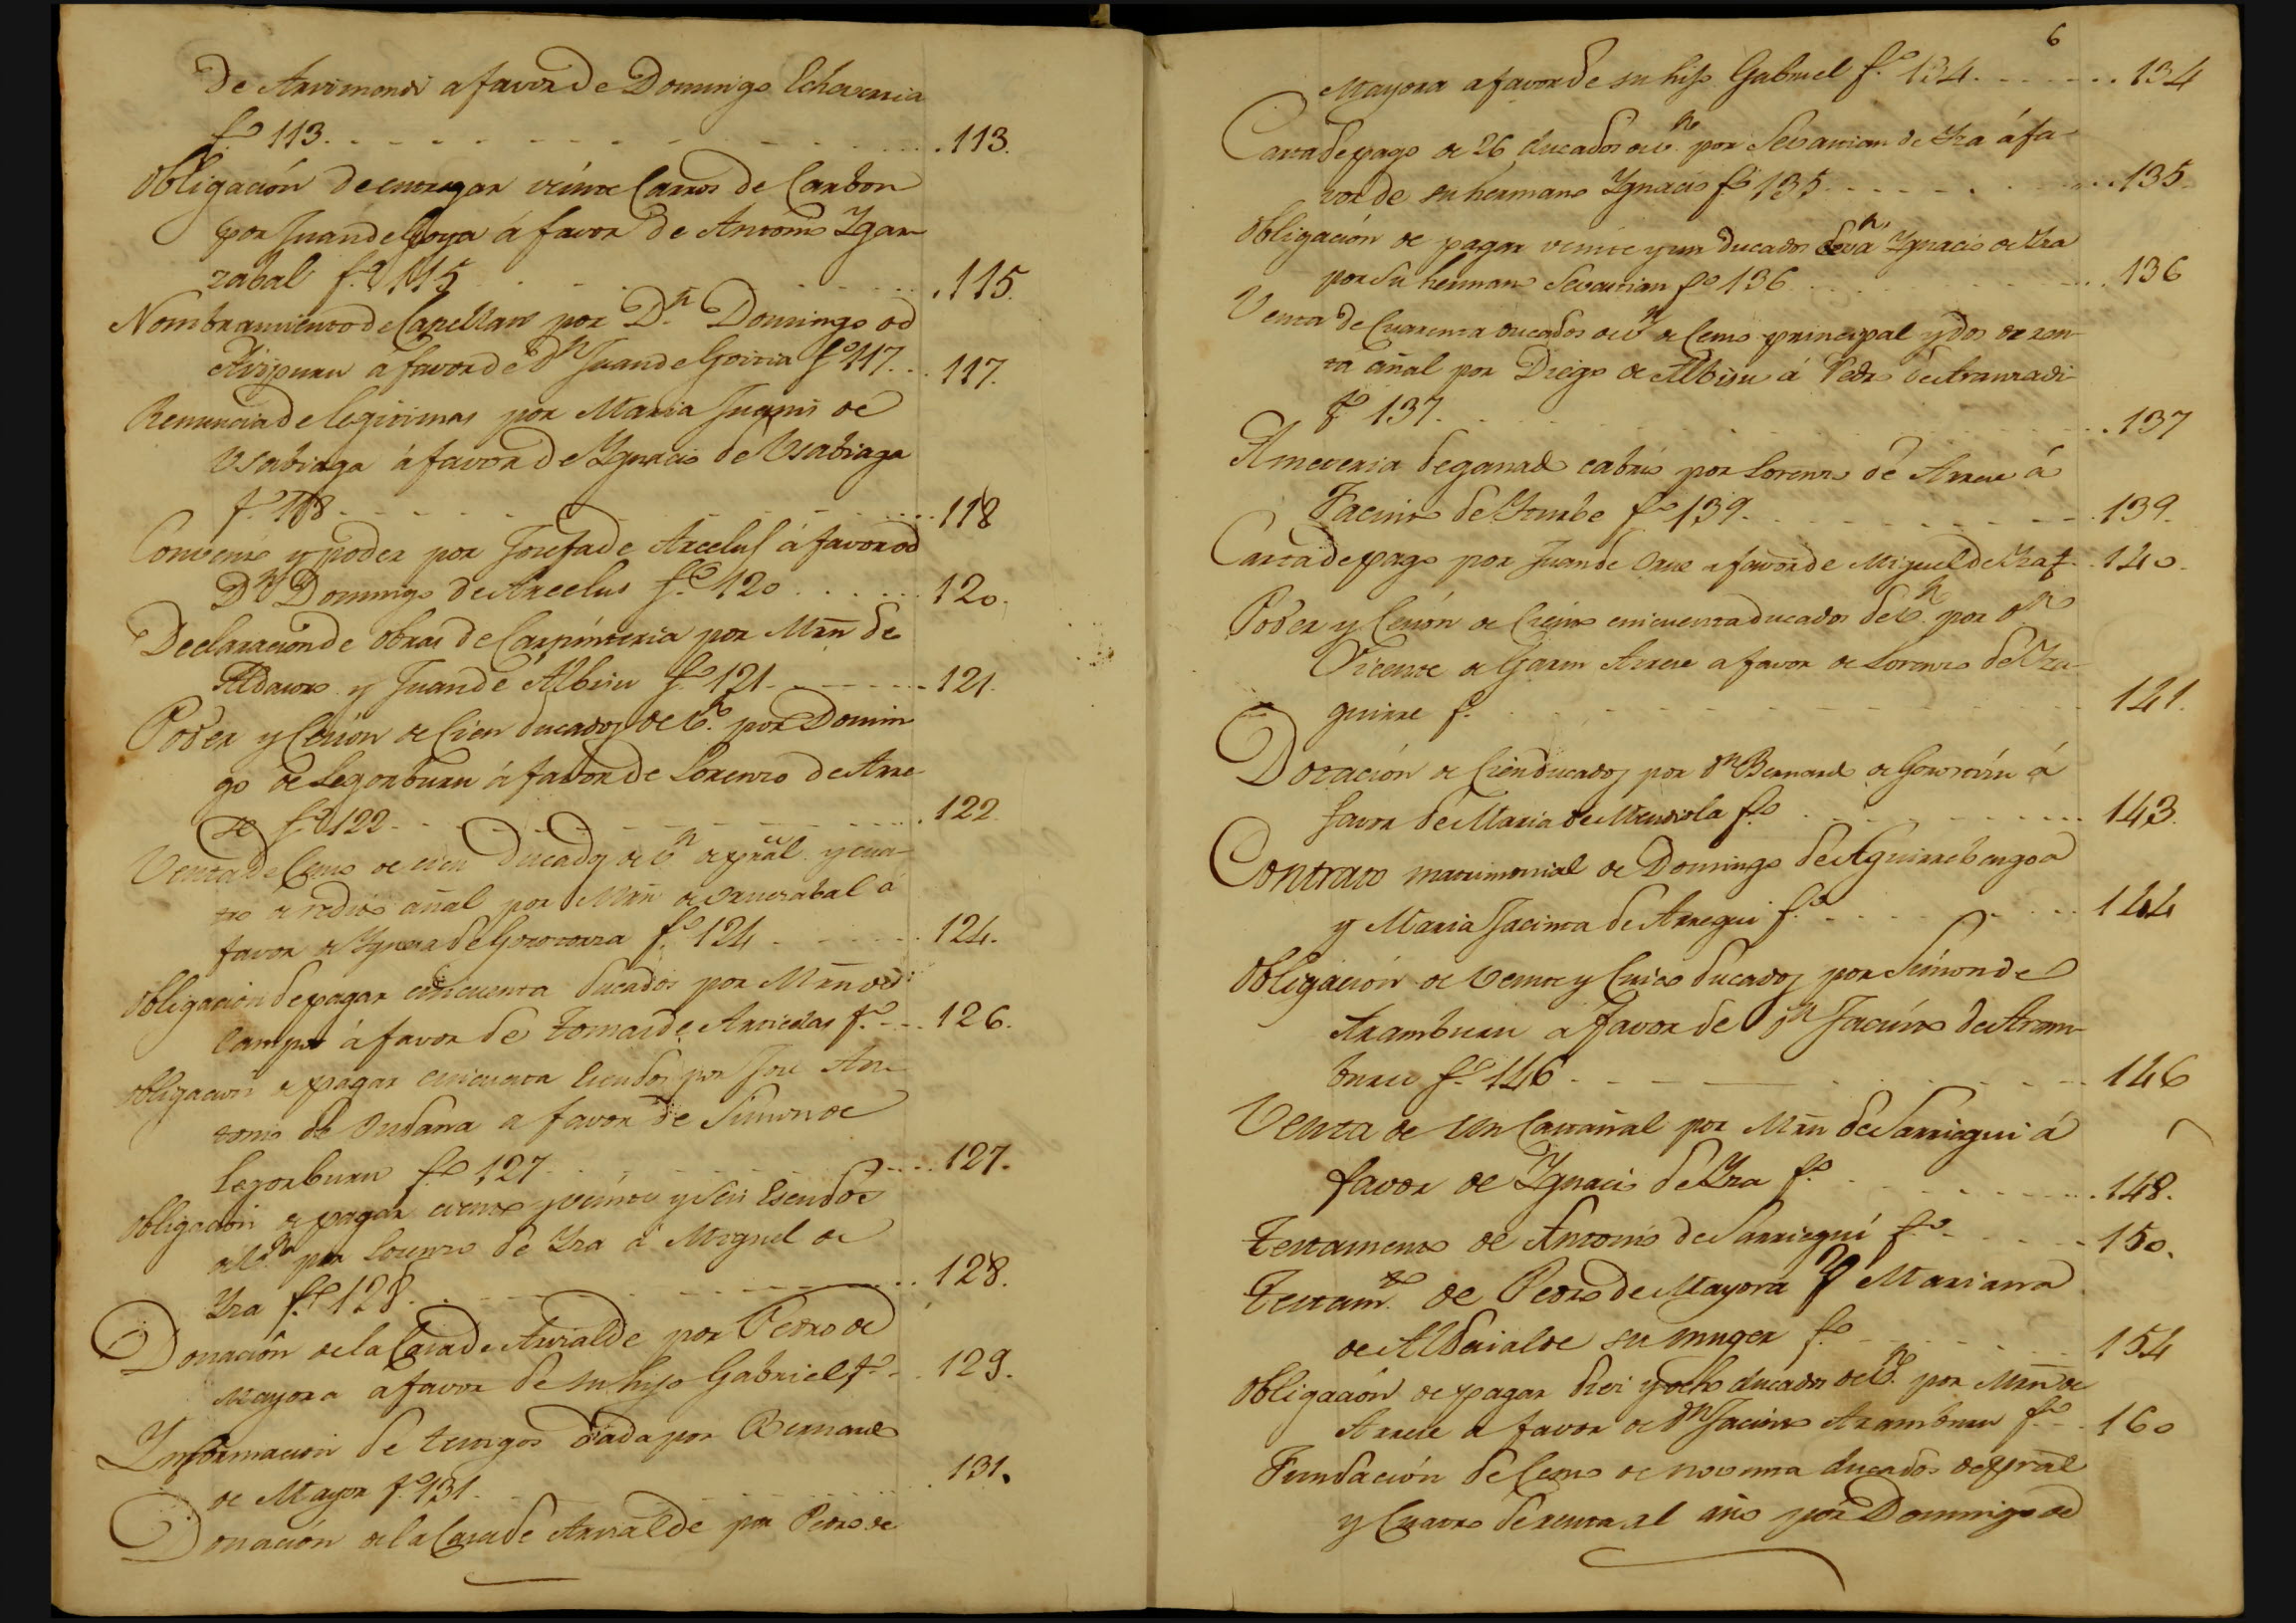 De Arrimendi a favor de Domingo Echaverria
f.º 113. . . . . . . . . . 113.
Obligación de entregar veinte Carros de Carbon
por Juan de Goya á favor de Antonio Ygar-
zabal f.º 115 . . . . . . 115.
Nombramiento de Capellan por D.n Domingo de
á favor de Dn Juan de Goitia fº 117. . . 117.
Renuncia de legitimas por Maria Juanis de
Usabiaga á favor de Ygnacio de Usabiaga
f.º 118 . . . . . . 118
Combenio y poder por Josefa de Arcelus á favor de
Dn Domingo de Arcelus f.º 120 . . . . . . 120.
Declaracion de obras de Carpinteria por Mrn de
Aldasoro y Juan de Albisu f.º 121 . . . . 121.
Poder y Cesión de Cien ducados de v.n por Domin
go de Legorburu á favor de Lorenzo de Arre-
se f.º 122 . . . . . . . 122
Venta de Censo de cien Ducados de vn de pral y cua-
tro de redito añal por Mrn de á
favor de Ygnacia de Gorostorza f.º 124 . . . . . 124.
Obligación de pagar cincuenta ducados por Mrn de
Campos á favor de Tomas de Arriedas f.º . . . 126.
Obligacion de pagar cincuenta Escudos por Jose An-
tonio de Undana a favor de Simon de
Legorburu f.º 127 . . . . . . 127.
Obligación de pagar ciento y veinte y seis Escudos
de vn por Lorenzo de Yza á Miguel de
Yza f.º 128. . . . . . . 128.
Donación de la Casa de Arrialde por Pedro de
Mayora á favor de su hijo Gabriel fº . . 129.
Ynformacion de testigos dada por Bernardo
de Mayor f.º 131. . . . . . . 131.
Donación de la Casa de Arrialde por Pedro de
6
Mayora a favor de su hijo Gabriel f.º 134. . . . . . . 134
Carta de pago de 26 ducados de v.n por Sebastian de Yza á fa-
vor de su hermano Ygnacio fº 135. . . . . . . 135.
Obligación de pagar veinte y un ducados de vn á Ygnacio de Yza
por su hermano Sevastian fº 136 . . . . . . 136
Venta de Cuarenta ducados de vn de Censo principal y dos de ren-
ta añal por Diego de Albisu á Pedro de Aranzadi
fº 137. . . . . . . 137
Ameteria de ganado cabrio por Lorenzo de Arrese á
Jacinto de Yturbe fº 139. . . . . . . 139.
Carta de pago por Juan de Orue a favor de Miguel de Yza f. . 140.
Poder y Cesión de Ciento cincuenta ducados de v.n por Dn
Vicente de Garin Arrese a favor de Lorenzo de Yza-
guirre f.º . . . . . . . 141.
Dotación de Cien ducados por Dn Bernardo de Gorostizu á
favor de Maria de Mendiola f.º . . . . . . . 143.
Contrato matrimonial de Domingo de Aguirrebengoa
y Maria Jacinta de Arregui f.º . . . . . . . 144
Obligación de Veinte y Cinco Ducados por Simon de
Aramburu a favor de Dn Jacinto de Aram-
buru f.º 146 . . . . . . . 146
Venta de Un Castañal por Mrn de Sarriegui á
favor de Ygnacio de Yza f.º . . . . . . . 148.
Testamento de Antonio de Sarriegui f.º . . . . . . 150.
Testamto de Pedro de Mayora y Mariana
de Alberialde su muger f.º . . . . . 154
Obligación de pagar diez y ocho ducados de v.n por Mrn de
Arrese a favor de Dn Jacinto Aramburu f.º . . 160
Fundación de Censo de noventa ducados de pral
y Cuatro de renta al año por Domingo de